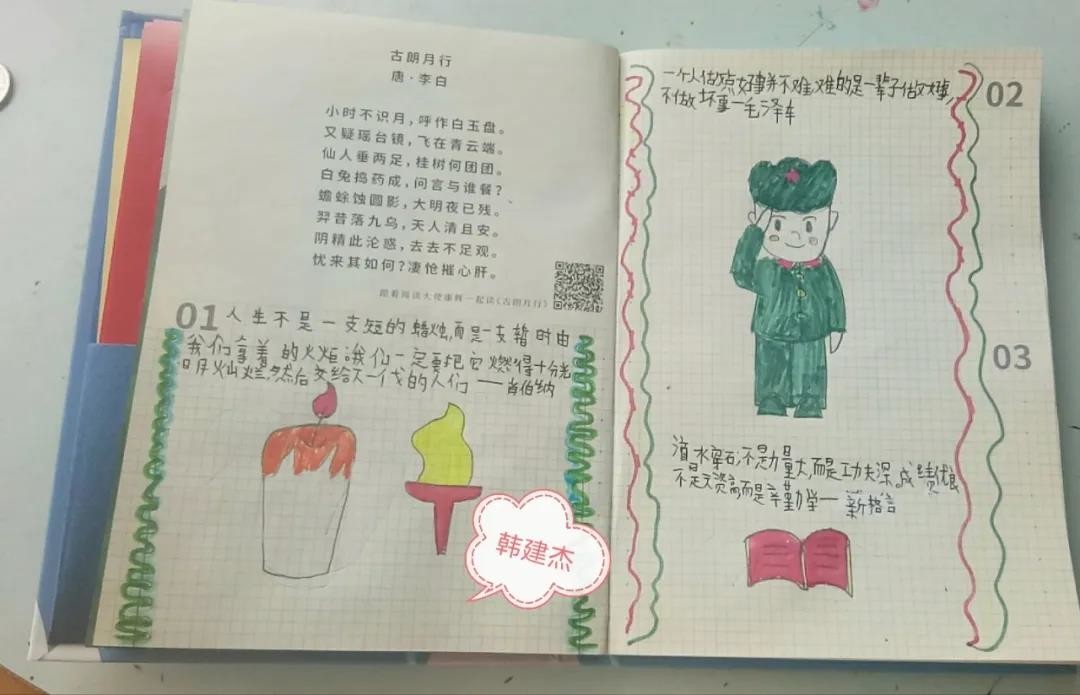 古朗月行
唐·李白
小时不识月，呼作白玉盘。
又疑瑶台镜，飞在青云端。
仙人垂两足，桂树何团团。
白兔捣药成，问言与谁餐？
蟾蜍蚀圆影，大明夜已残。
羿昔落九乌，天人清且安。
阴精此沦惑，去去不足观。
忧来其如何？凄怆摧心肝。
跟着阅读大使康辉一起读《古朗月行》
01
人生不是一支短的蜡烛，而是一支暂时由
我们拿着的火炬。我们一定要把它燃得十分光
明灿烂，然后交给下一代的人们——肖伯纳
韩建杰
02
一个人做点好事并不难，难的是一辈子做好事，
不做坏事—毛泽东
03
滴水穿石，不是力量大，而是功夫深。成绩优良
不是天资高，而是辛勤学——新格言